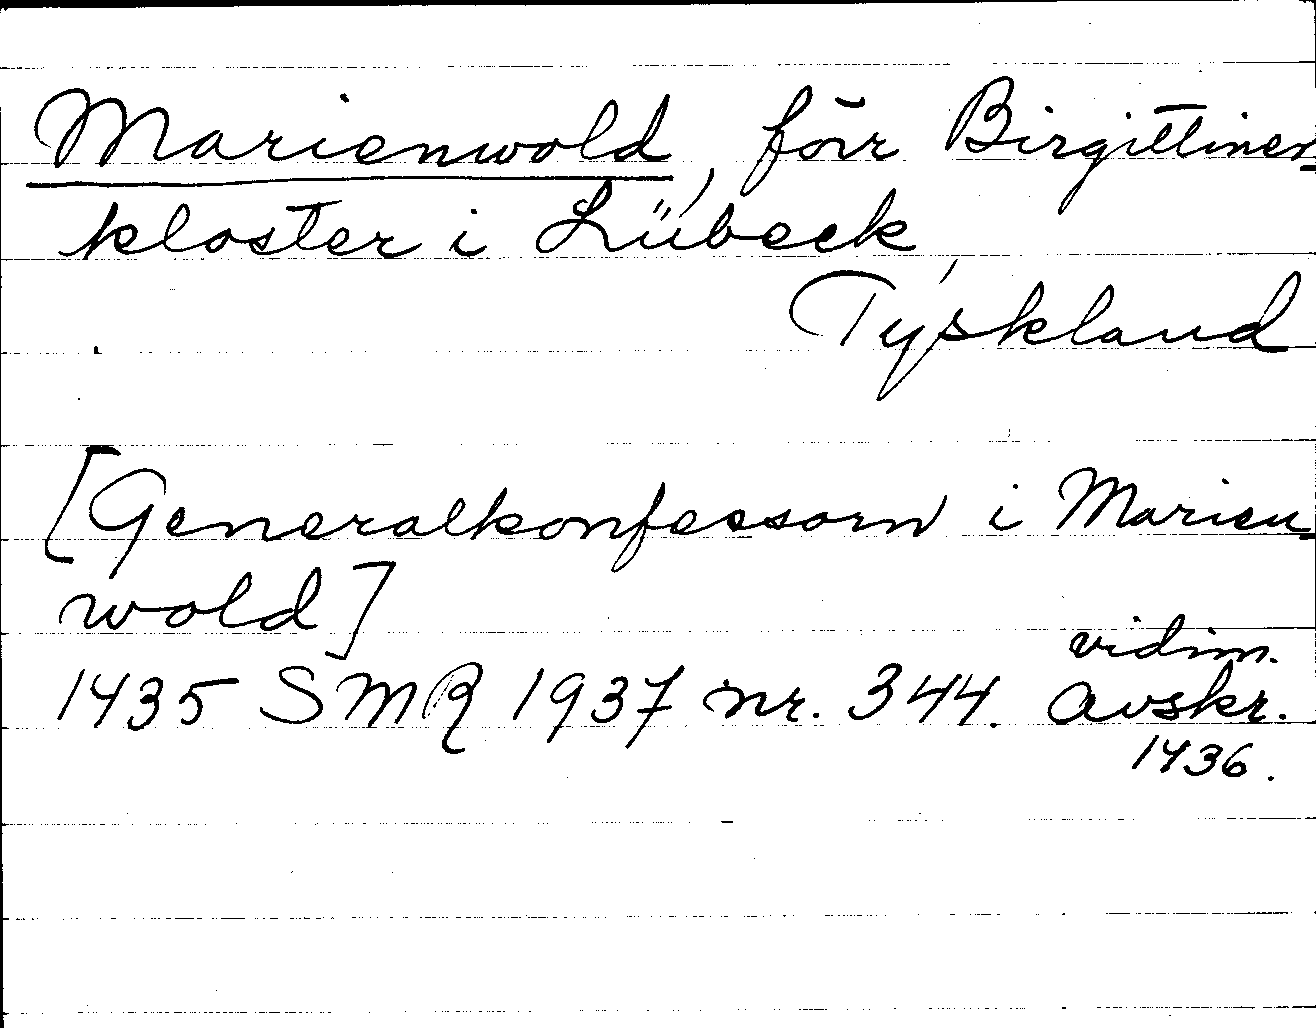 Marienwold, förr Birgittiner
kloster i Lübeck,
Tyskland
[Generalkonfessorn i Marien-
wold]
1435 SMR 1937 nr. 344. vidim.
avskr.
1436.